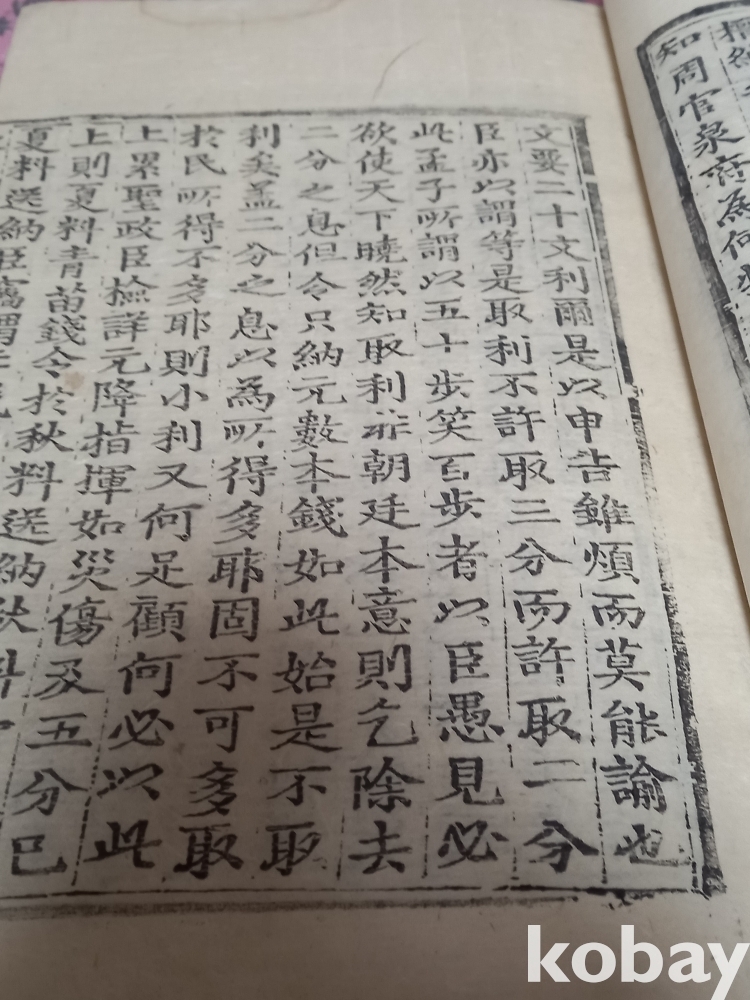 知周官泉府為何
文要二十文利爾是以申告雖煩而莫能諭也
臣亦以謂等是取利不許取三分而許取二分
此孟子所謂以五十步笑百步者以臣愚見必
欲使天下曉然知取利非朝廷本意則乞除去
二分之息但令只納元數本錢如此始是不取
利矣盖二分之息以為所得多耶固不可多取
於民所得不多耶則小利又何足顧何必以此
上累聖政臣撿詳元降指揮如災傷及五分已
上則夏料青苗錢令於秋料送納秋料
夏料送納臣竊謂
kobay